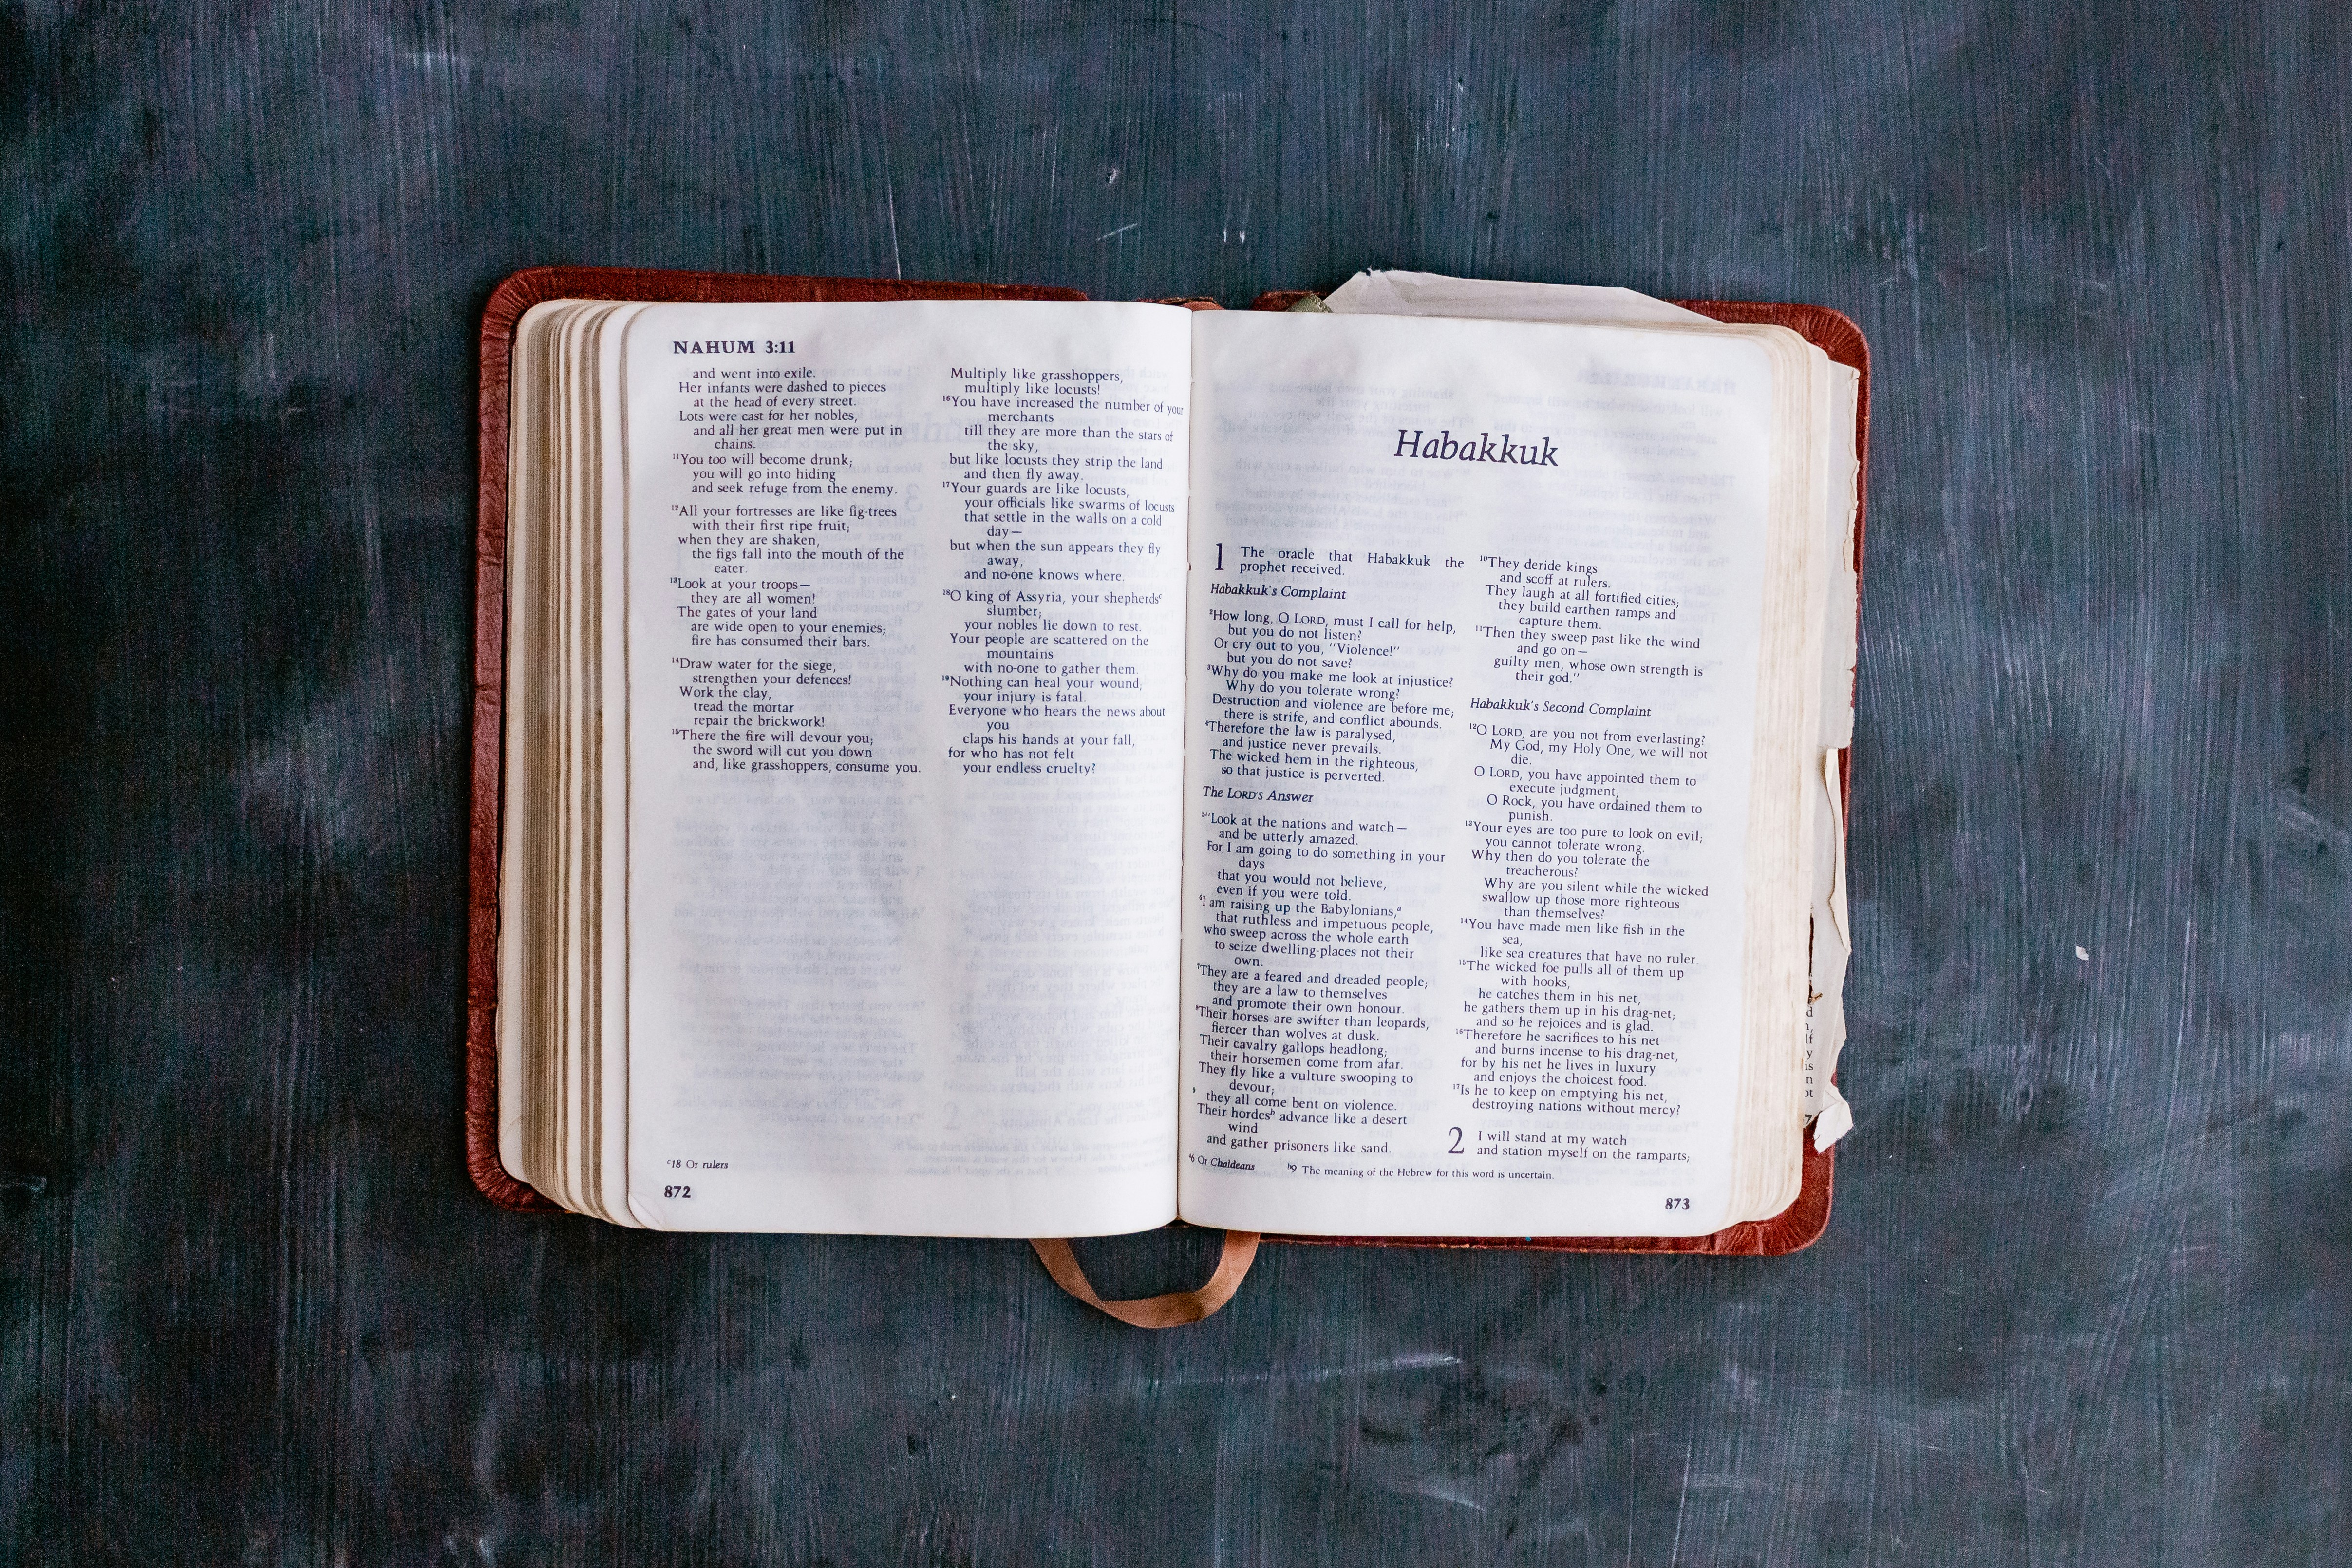 NAHUM 3:11
and went into exile.
Her infants were dashed to pieces
at the head of every street.
Lots were cast for her nobles,
and all her great men were put in
chains.
¹¹You too will become drunk;
you will go into hiding
and seek refuge from the enemy.
¹²All your fortresses are like fig-trees
with their first ripe fruit;
when they are shaken,
the figs fall into the mouth of the
eater.
¹³Look at your troops—
they are all women!
The gates of your land
are wide open to your enemies;
fire has consumed their bars.
¹⁴Draw water for the siege,
strengthen your defences!
Work the clay,
tread the mortar
repair the brickwork!
¹⁵There the fire will devour you;
the sword will cut you down
and, like grasshoppers, consume you.
Multiply like grasshoppers,
multiply like locusts!
¹⁶You have increased the number of your
merchants
till they are more than the stars of
the sky,
but like locusts they strip the land
and then fly away.
¹⁷Your guards are like locusts,
your officials like swarms of locusts
that settle in the walls on a cold
day—
but when the sun appears they fly
away,
and no-one knows where.
¹⁸O king of Assyria, your shepherdsᶜ
slumber;
your nobles lie down to rest.
Your people are scattered on the
mountains
with no-one to gather them.
¹⁹Nothing can heal your wound;
your injury is fatal.
Everyone who hears the news about
you
claps his hands at your fall,
for who has not felt
your endless cruelty?
ᶜ18 Or rulers
872
Habakkuk
1 The oracle that Habakkuk the
prophet received.
Habakkuk's Complaint
²How long, O LORD, must I call for help,
but you do not listen?
Or cry out to you, "Violence!"
but you do not save?
³Why do you make me look at injustice?
Why do you tolerate wrong?
Destruction and violence are before me;
there is strife, and conflict abounds.
⁴Therefore the law is paralysed,
and justice never prevails.
The wicked hem in the righteous,
so that justice is perverted.
The LORD's Answer
⁵"Look at the nations and watch—
and be utterly amazed.
For I am going to do something in your
days
that you would not believe,
even if you were told.
⁶I am raising up the Babylonians,ᵃ
that ruthless and impetuous people,
who sweep across the whole earth
to seize dwelling-places not their
own.
⁷They are a feared and dreaded people;
they are a law to themselves
and promote their own honour.
⁸Their horses are swifter than leopards,
fiercer than wolves at dusk.
Their cavalry gallops headlong;
their horsemen come from afar.
They fly like a vulture swooping to
devour;
⁹ they all come bent on violence.
Their hordesᵇ advance like a desert
wind
and gather prisoners like sand.
¹⁰They deride kings
and scoff at rulers.
They laugh at all fortified cities;
they build earthen ramps and
capture them.
¹¹Then they sweep past like the wind
and go on—
guilty men, whose own strength is
their god."
Habakkuk's Second Complaint
¹²O LORD, are you not from everlasting?
My God, my Holy One, we will not
die.
O LORD, you have appointed them to
execute judgment;
O Rock, you have ordained them to
punish.
¹³Your eyes are too pure to look on evil;
you cannot tolerate wrong.
Why then do you tolerate the
treacherous?
Why are you silent while the wicked
swallow up those more righteous
than themselves?
¹⁴You have made men like fish in the
sea,
like sea creatures that have no ruler.
¹⁵The wicked foe pulls all of them up
with hooks,
he catches them in his net,
he gathers them up in his drag-net;
and so he rejoices and is glad.
¹⁶Therefore he sacrifices to his net
and burns incense to his drag-net,
for by his net he lives in luxury
and enjoys the choicest food.
¹⁷Is he to keep on emptying his net,
destroying nations without mercy?
2 I will stand at my watch
and station myself on the ramparts;
ᵃ6 Or Chaldeans ᵇ9 The meaning of the Hebrew for this word is uncertain.
873